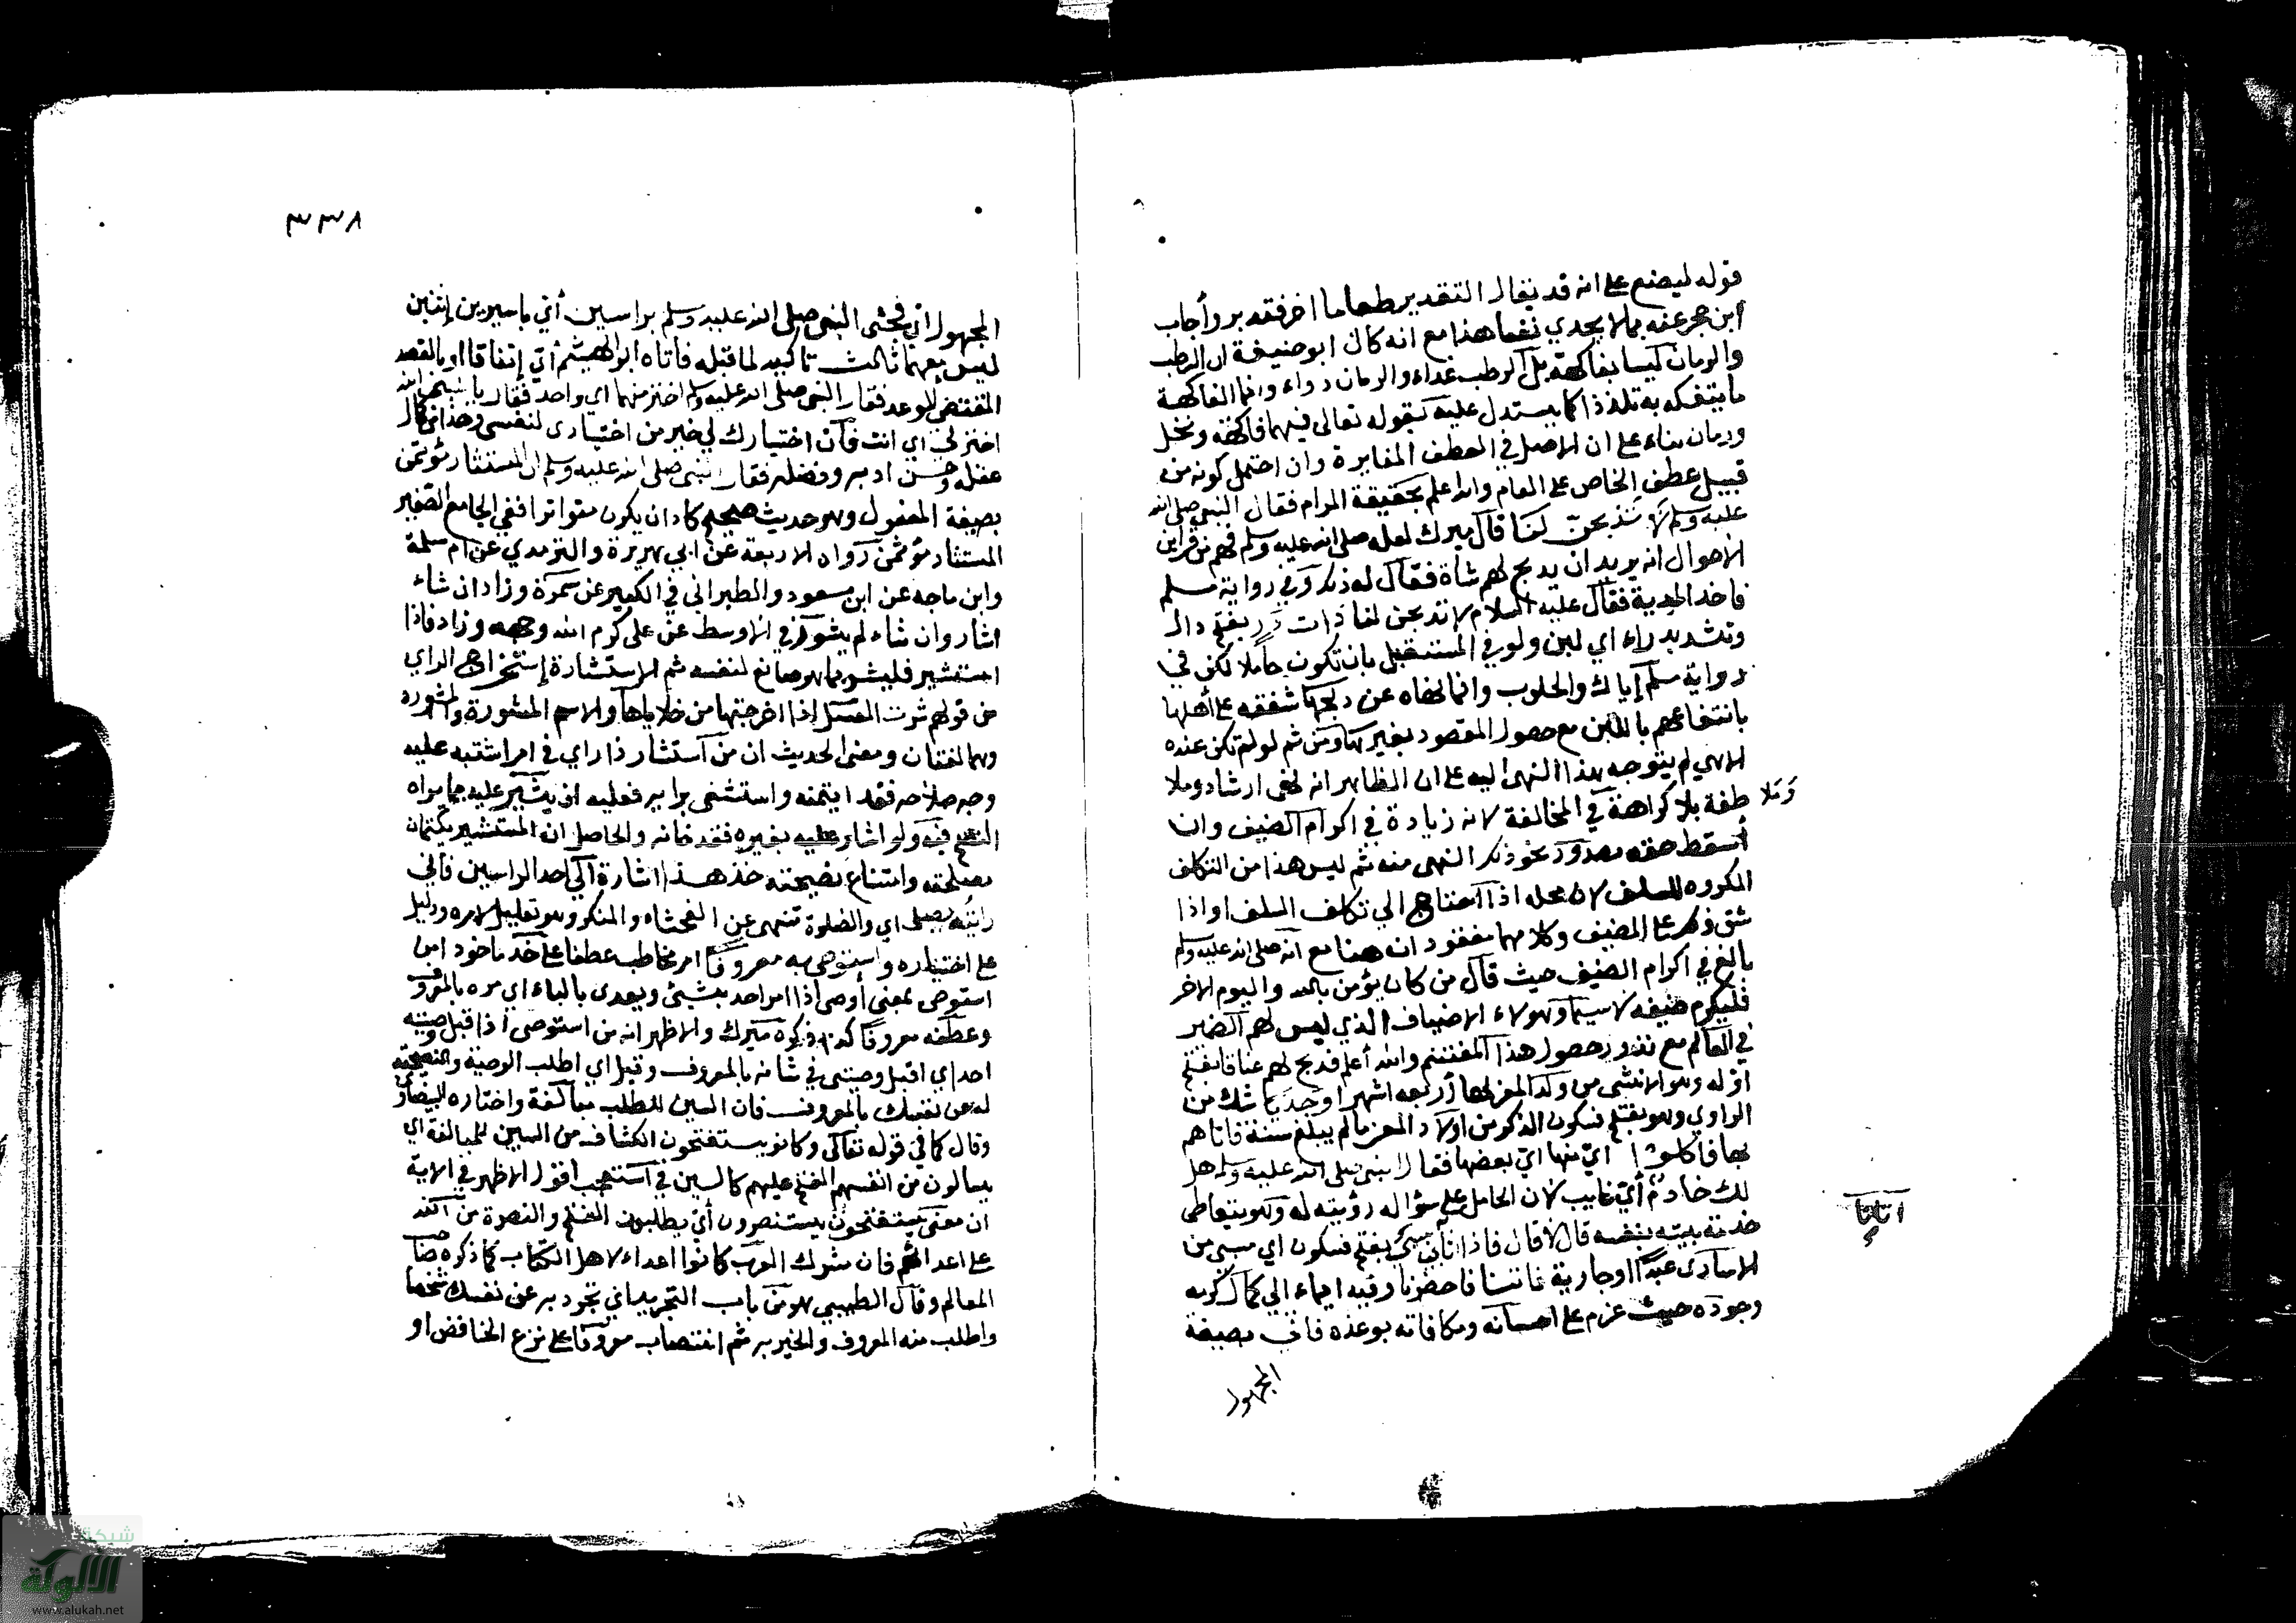 قوله ليصنع على انه قد يقال التقدير طعاما اخر فقه بر وأجاب
ابن حجر عنه بما لا يجدي نفعا هذا مع انه كان ابو حنيفة ان الرطب
والرمان ليسا بفاكهة بل الرطب غداء والرمان دواء وانما الفاكهة
ما يتفكه به تلذذا كما يستدل عليه بقوله تعالى فيهما فاكهة ونخل
ورمان بناء على ان الاصل في العطف المغايرة وان احتمل كونه من
قبيل عطف الخاص على العام والله اعلم بحقيقة المرام فقال النبي صلى الله
عليه وسلم لا تذبحن لنا قال ميرك لعله صلى الله عليه وسلم فهم من قراين
الاحوال انه يريد ان يدبح لهم شاة فقال له ذلك وفي رواية مسلم
فاخذ المدية فقال عليه السلام لا تدبحن لنا ذات در بفتح دال
وتشديد راء اي لبن ولو في المستقبل بان تكون حاملا لكن في
رواية مسلم إياك والحلوب وانما نهاه عن دبحها شفقة على أهلها
بانتفاعهم باللبن مع حصول المقصود بغيرها ومن ثم لو لم تكن عنده
الا هي لم يتوجه هذا النهى اليه على ان الظاهر انه نهى ارشاد وملا
طفة بلا كراهة في المخالفة لانه زيادة في اكرام الضيف وان
أسقط حقه بصدور نحو ذلك النهى منه ثم ليس هذا من التكلف
المكروه للسلف لان محله اذا احتاج الي تكلف السلف او اذا
شق ذلك على المضيف وكلاهما مفقود ان هنا مع انه صلى الله عليه وسلم
بالغ في اكرام الضيف حيث قال من كان يؤمن بالله واليوم الاخر
فليكرم ضيفه لا سيما وهولاء الاضياف الذي ليس لهم النضير
في العالم مع ندور حصول هذا المغتنم والله أعلم فدبح لهم عناقا بفتح
اوله وهو الانثى من ولد المعز لها أربعه اشهر او جديا شك من
الراوي وهو بفتح فسكون الذكر من اولاد المعز ما لم يبلغ سنة فاتاهم
بها فاكلوا اي منها اي بعضها فقال النبي صلى الله عليه وسلم هل
لك خادم أي غايب لان الحامل على سؤاله رؤيته له وهو يتعاطى
خدمة بيته بنفسه قال لا قال فاذا أتانا سبي بفتح فسكون اي مسبي من
الاسارى عبدا او جارية فاتنا فاحضرنا وفيه ايماء الي كمال كرمه
وجوده حيث عزم على احسانه ومكافاته بوعده فاتي بصيغة
المجهول
وملا
اتانا
٣٣٨
المجهول اي فجئ النبي صلى الله عليه وسلم براسين أي باسيرين إثنين
ليس معهما ثالث تاكيد لما قبله فاتاه ابو الهيثم أي إتفاقا او بالقصد
المقتضي للوعد فقال النبي صلى الله عليه وسلم اختر منهما اي واحد فقال يا نبي الله
اختر لي اي انت فان اختيارك لي خير من اختياري لنفسي وهذا من كمال
عقله وحسن ادبه وفضله فقال النبي صلى الله عليه وسلم ان المستشار مؤتمن
بصيغة المفعول وهو حديث صحيح كاد ان يكون متواترا ففي الجامع الصغير
المستشار مؤتمن رواه الاربعة عن ابي هريرة والترمدي عن ام سلمة
وابن ماجه عن ابن مسعود والطبراني في الكبير عن سمرة وزاد ان شاء
اشار وان شاء لم يشر وفي الاوسط عن على كرم الله وجهه وزاد فاذا
استشير فليشر بما هو صانع لنفسه ثم الاستشارة إستخراج الراي
من قولهم شرت العسل إذا اخرجتها من خلاياها والاسم المشورة والمشورة
وهما لغتان ومعنى الحديث ان من استشار ذا راي في امر اشتبه عليه
وجه صلاحه فقد ايتمنه واستشفى برايه فعليه ان يشير عليه بما يراه
النصح فيه ولو اشار عليه بغيره فقد خانه والحاصل ان المستشير بكتمان
مصلحته وامتناع نصيحته خذ هذا اشارة الى احد الراسين فاني
رايته يصلى اي والصلوة تنهى عن الفحشاء والمنكر وهو تعليل لامره ودليل
على اختياره واستوص به معروفا امر مخاطب عطفا على خذ ماخوذ من
استوصى بمعنى أوصى اذا امر احد بشيئ ويعدى بالباء اي مره بالمعروف
وعطفه معروفا كدا ذكره ميرك والاظهر انه من استوصى اذا قبل وصيته
احد اي اقبل وصيتي في شانه بالمعروف وقيل اي اطلب الوصية والنصيحة
له من نفسك بالمعروف فان السين للطلب مبالغة واختاره البيضاوي
وقال كما في قوله تعالى وكانوا يستفتحون الكشاف من السين للمبالغة اي
يسالون من انفسهم الفتح عليهم كالسين في استعجب اقول الاظهر في الاية
ان معنى يستفتحون يستنصرون أي يطلبون الفتح والنصرة من الله
على اعدائهم فان مشرك العرب كانوا اعداء لاهل الكتاب كما ذكره صاحب
المعالم وقال الطيبي هو من باب التجريد اي تجرد به عن نفسك شخصا
واطلب منه المعروف والخير به ثم انتصاب معروفا على نزع الخافض او
شبكة
الألوكة
www.alukah.net